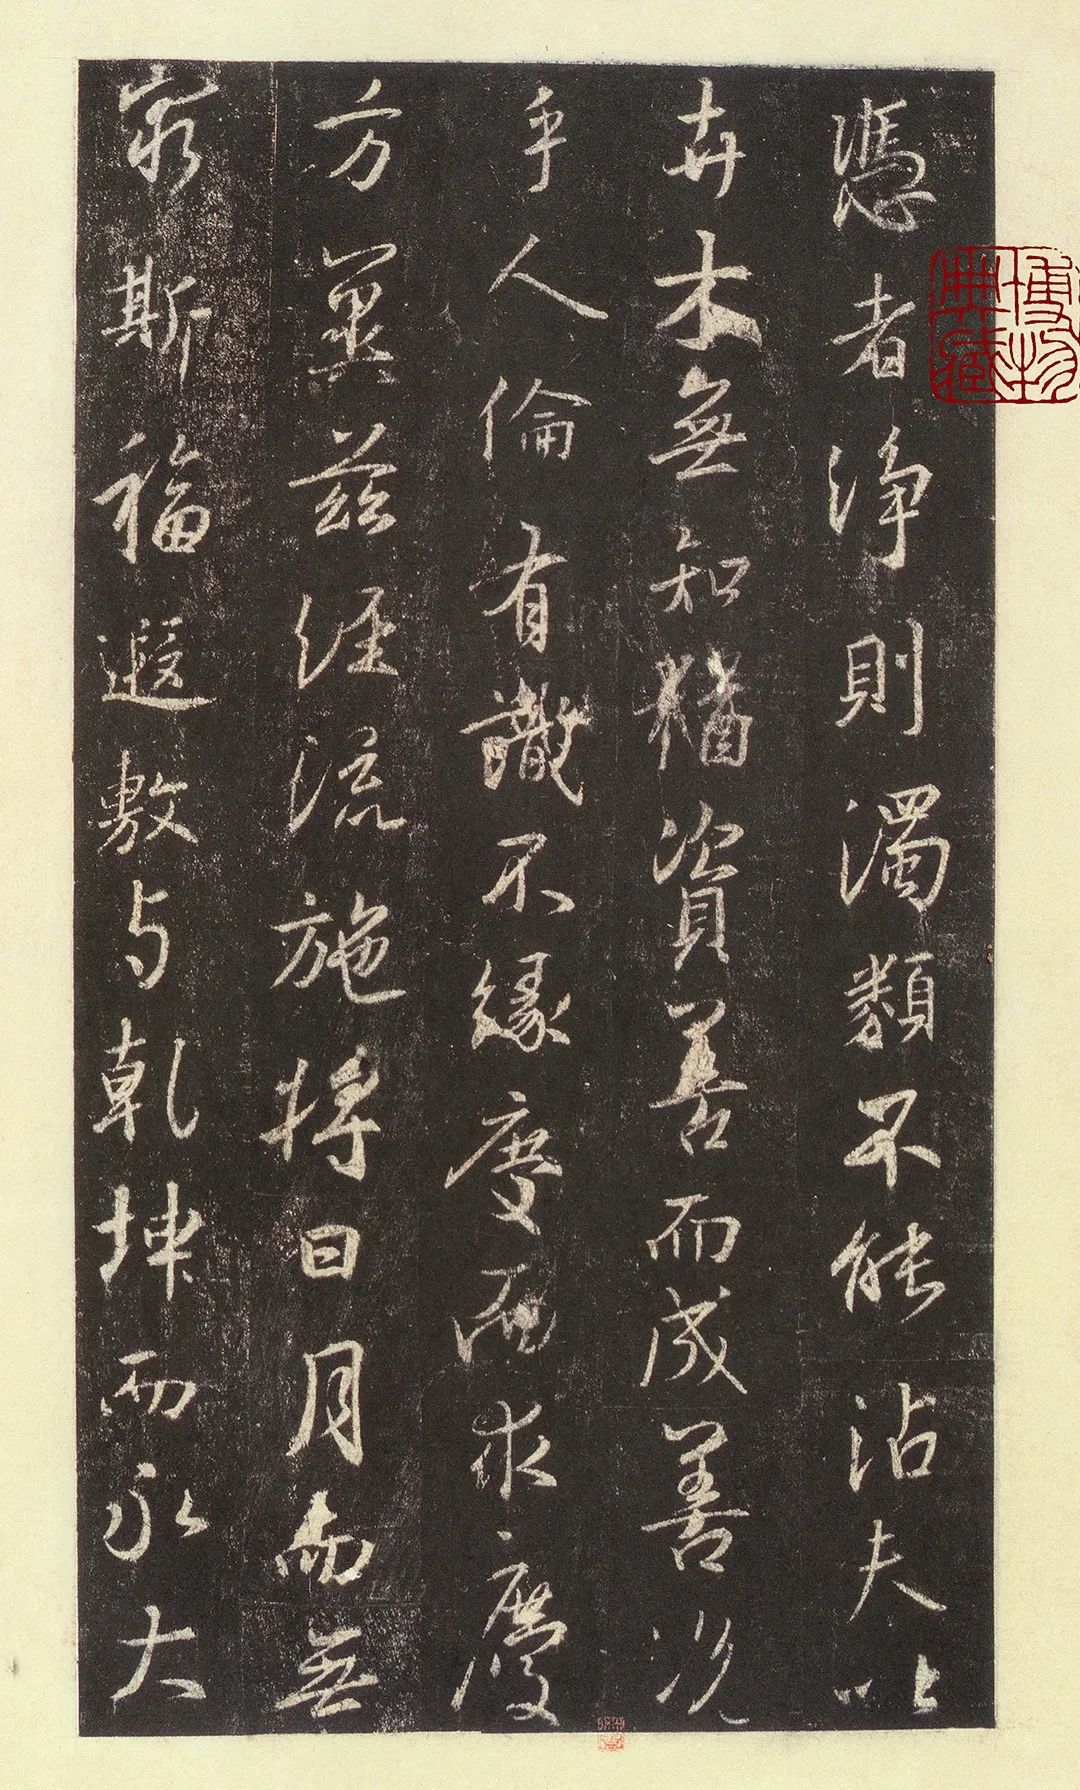 憑者淨則濁類不能沾夫以
卉木無知猶資善而成善況
乎人倫有識不緣慶而求慶
方冀茲經流施將日月而無
窮斯福遐敷与乾坤而永大
博物
典藏